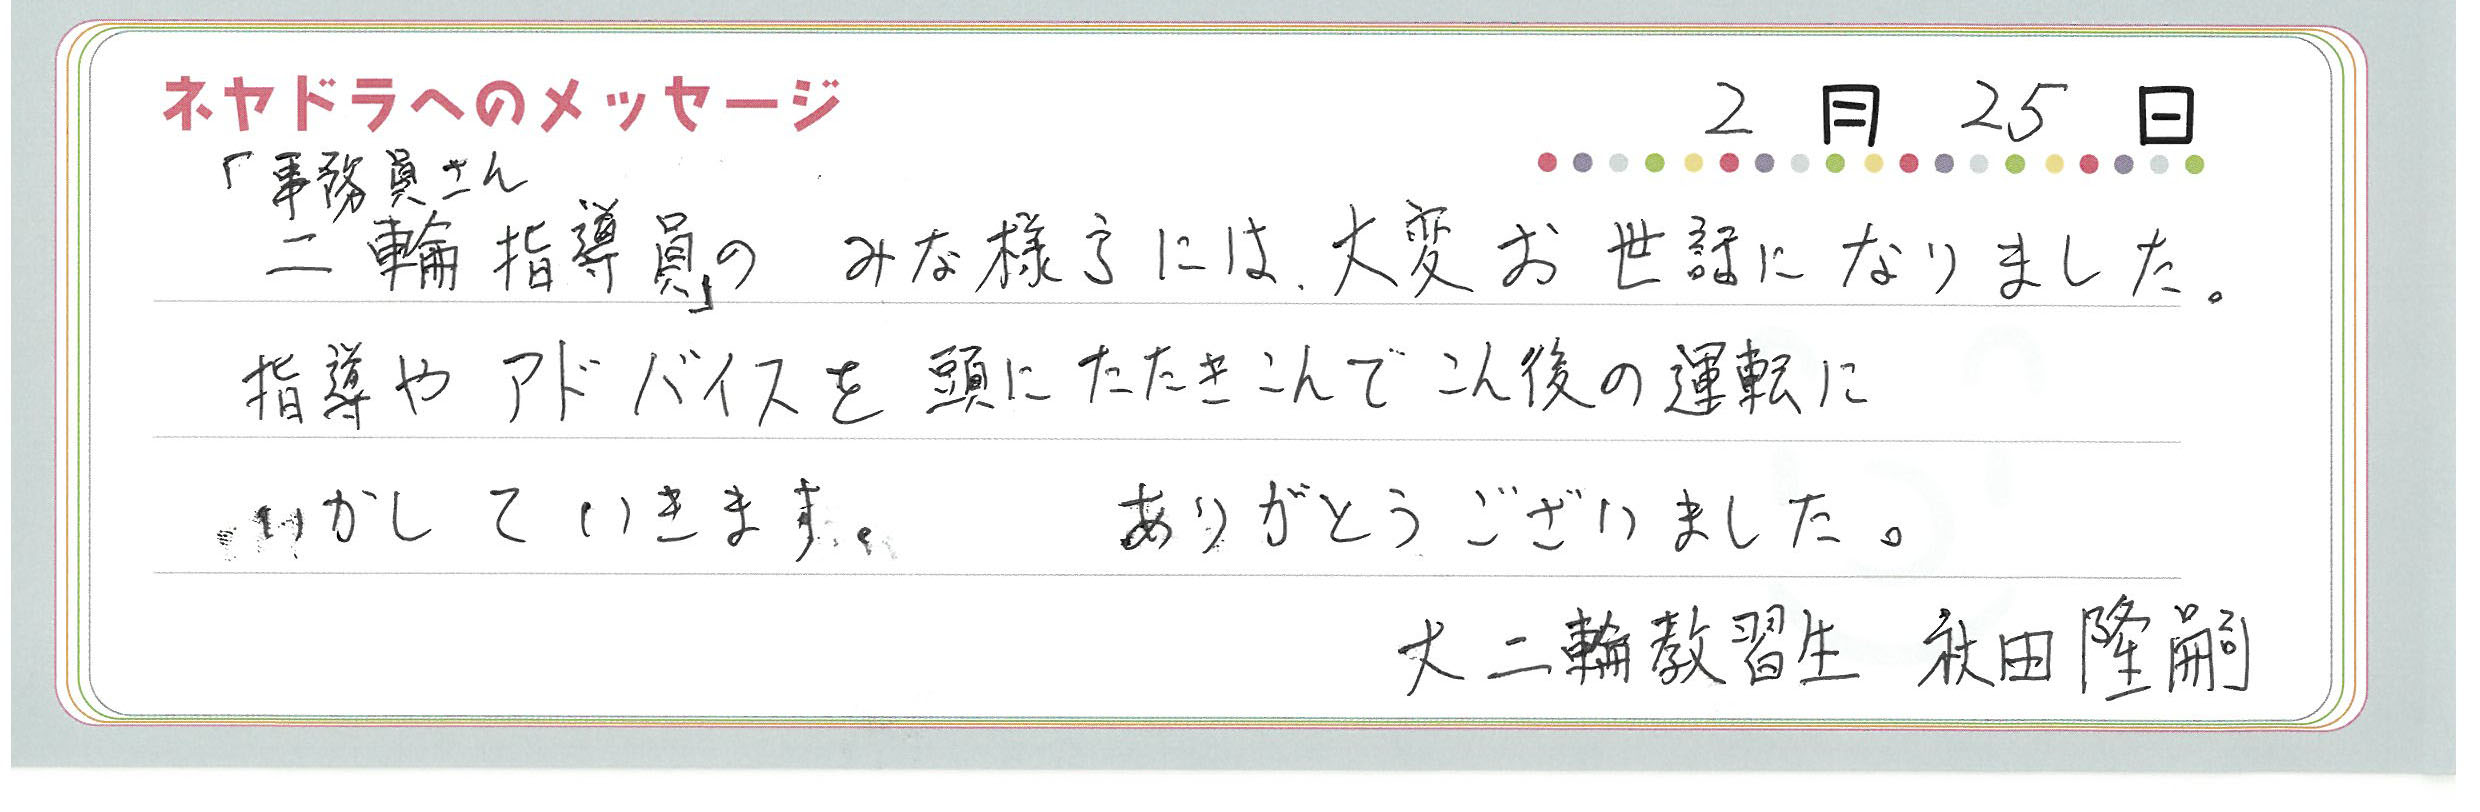 ネヤドラへのメッセージ
2月25日
「事務員さん
二輪指導員」のみな様方には、大変お世話になりました。
指導やアドバイスを頭にたたきこんでこん後の運転に
いかしていきます。ありがとうございました。
大二輪教習生 秋田隆嗣